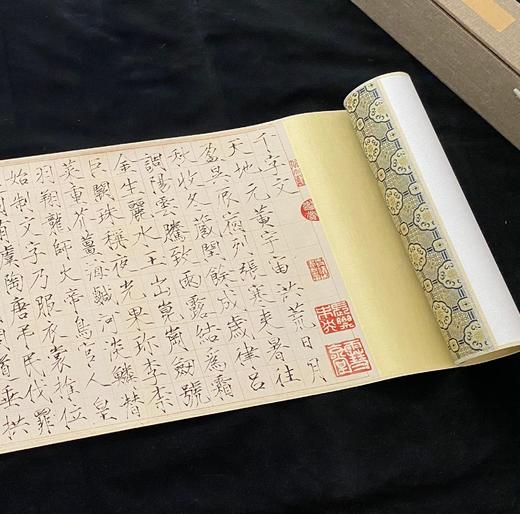 千字文
天地元黃宇宙洪荒日月
盈昃辰宿列張寒來暑往
秋收冬藏閏餘成歲律呂
調陽雲騰致雨露結為霜
金生麗水玉出崑岡劍號
巨闕珠稱夜光果珍李柰
菜重芥薑海鹹河淡鱗潛
羽翔龍師火帝鳥官人皇
始制文字乃服衣裳推位
有虞陶唐弔民伐罪
垂拱